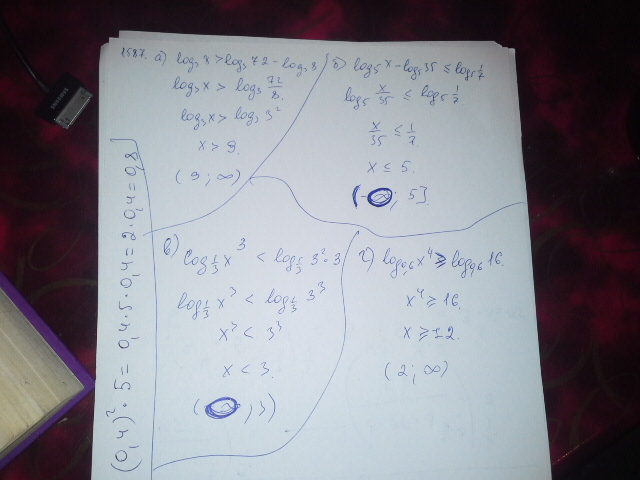 1587. а) log₃ x > log₃ 72 - log₃ 8
log₃ x > log₃ 72/8.
log₃ x > log₃ 3²
x > 9.
(9; ∞)
б) log₅ x - log₅ 35 ≤ log₅ 1/7
log₅ x/35 ≤ log₅ 1/7.
x/35 ≤ 1/7.
x ≤ 5.
; 5].
в) log 1/3 x³ < log 1/3 3²·3
log 1/3 x³ < log 1/3 3³
x³ < 3³
x < 3.
; 3)
г) log₀,₆ x⁴ ≥ log₀,₆ 16.
x⁴ ≥ 16.
x ≥ ±2.
(2; ∞)
(0,4)²·5 = 0,4·5·0,4 = 2·0,4 = 0,8
SAMSUNG